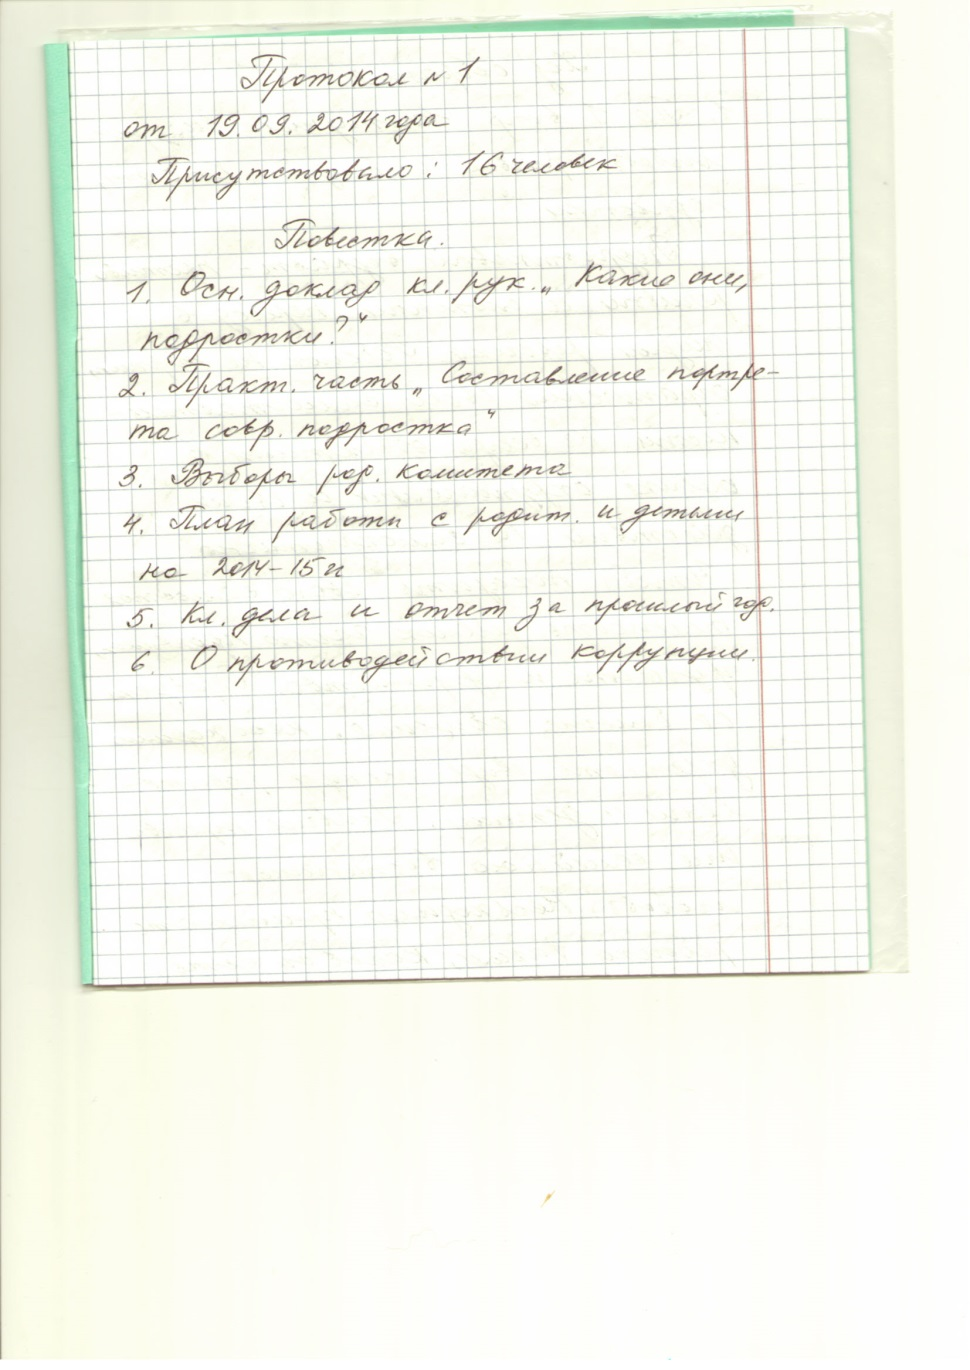 Протокол N 1
от 19.09.2014 года
Присутствовало: 16 человек
Повестка.
1. Осн. доклад кл. рук. „Какие они,
подростки?“
2. Практ. часть „Составление портре-
та совр. подростка“
3. Выборы род. комитета
4. План работы с родит. и детьми
на 2014-15 г
5. Кл. дела и отчет за прошлый год.
6. О противодействии коррупции.